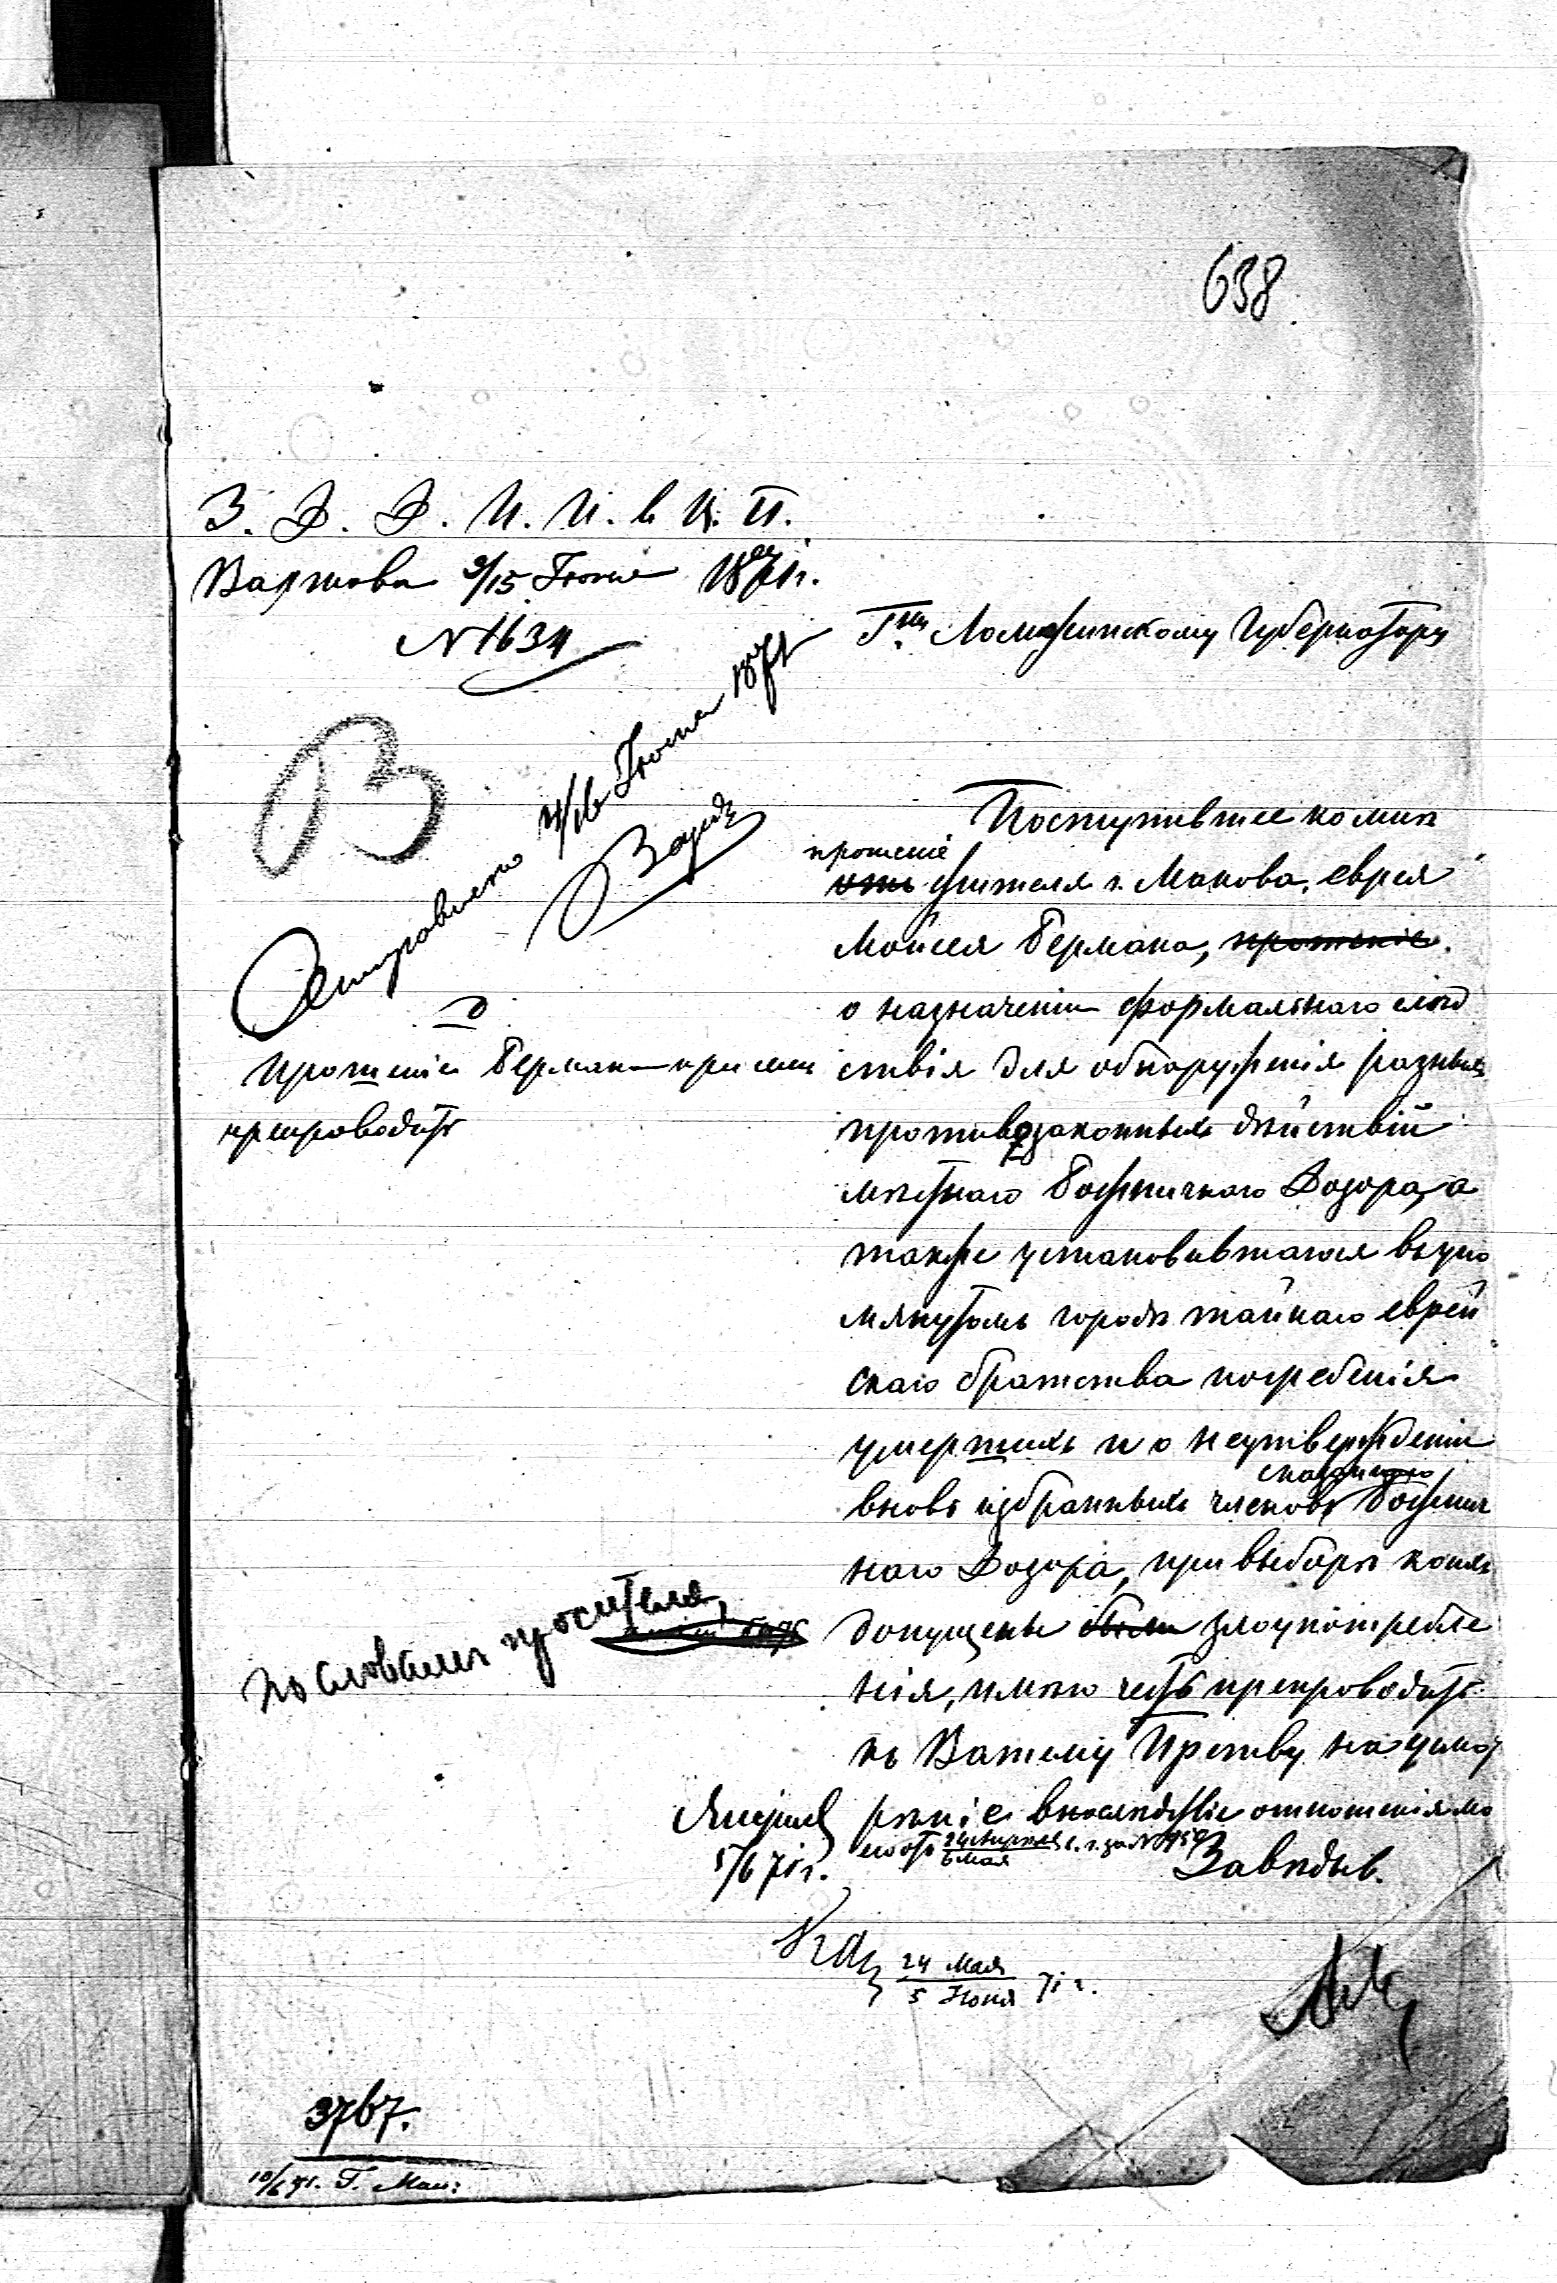 638
З. Д. Д. И. И. в Ц. П.
Варшава 3/15 Іюня 1871 г.
№ 1634
Гну Ломжинскому Губернатору
Отправлено 4/16 Іюня 1871
Поступившее ко мнѣ
прошеніе
отъ жителя г. Макова, еврея
Мойсея Бермана, прошеніе
о назначеніи формальнаго слѣд
ствія для обнаруженія разныхъ
противозаконныхъ дѣйствій
мѣстнаго Божничнаго Дозора, а
также установившагося въ упо
мянутомъ городѣ тайнаго еврей
скаго братства погребенія
умершихъ и о неутвержденіи
сказаннаго
вновь избранныхъ членовъ Божнич
наго Дозора, при выборѣ коихъ
по словамъ просителя,
допущены были злоупотребле
нія, имѣю честь препроводить
къ Вашему Прству на усмот
рѣніе впослѣдствіе отношенія мо
его отъ 24 Апрѣля/6 Мая с. г. за №
Завѣдыв.
Прошеніе Бермана при семъ
препроводить
5/6 71 г.
24 Мая
5 Іюня 71 г.
3767.
10/6 71.